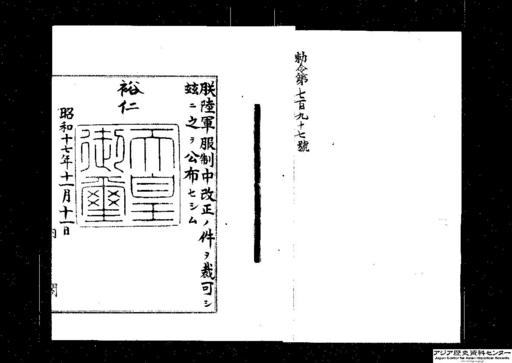 勅令第七百九十七號
朕陸軍服制中改正ノ件ヲ裁可シ
玆ニ之ヲ公布セシム
裕仁
天皇御璽
昭和十七年十一月十一日
内 閣
アジア歴史資料センター
Japan Center for Asian Historical Records